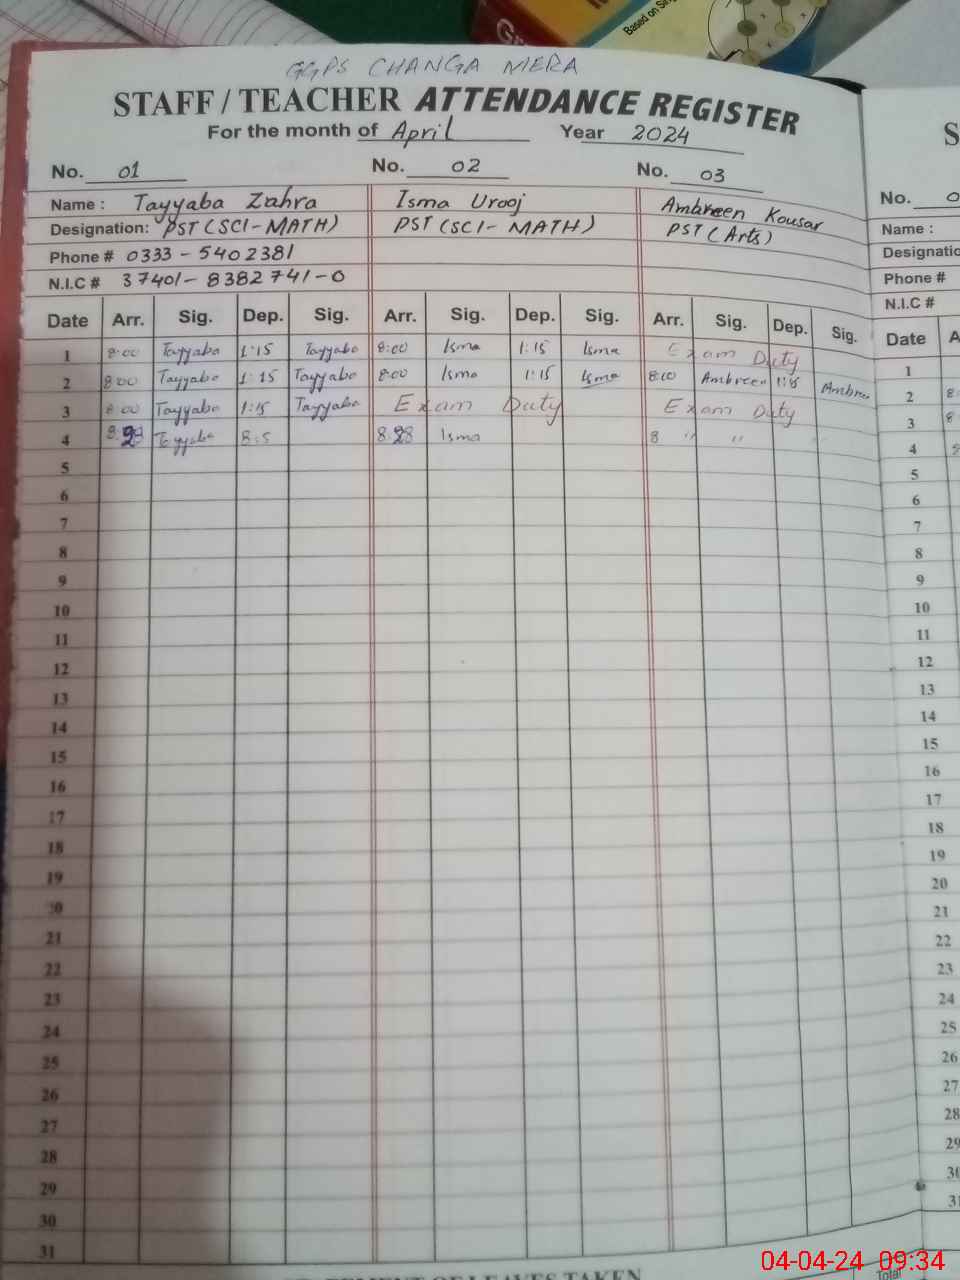 Based on
GGPS CHANGA MERA
STAFF / TEACHER ATTENDANCE REGISTER
For the month of April Year 2024
No. 01 No. 02 No. 03
Name : Tayyaba Zahra Isma Urooj Ambreen Kousar
Designation: PST (SCI-MATH) PST (SCI-MATH) PST (Arts)
Phone # 0333-5402381
N.I.C # 37401-8382741-0
Date Arr. Sig. Dep. Sig. Arr. Sig. Dep. Sig. Arr. Sig. Dep. Sig.
1 8:00 Tayyaba 1:15 Tayyaba 8:00 Isma 1:15 Isma Exam Duty
2 8:00 Tayyaba 1:15 Tayyaba 8:00 Isma 1:15 Isma 8:00 Ambreen 1:15 Ambreen
3 8:00 Tayyaba 1:15 Tayyaba Exam Duty Exam Duty
4 Tayyaba 8:5 Isma 8 " "
5
6
7
8
9
10
11
12
13
14
15
16
17
18
19
20
21
22
23
24
25
26
27
28
29
30
31
No.
Name :
Phone #
N.I.C #
Date
1
2
3
4
5
6
7
8
9
10
11
12
13
14
15
16
17
18
19
20
21
22
23
24
25
26
27
28
29
30
31
OF LEAVES TAKEN
Total
04-04-24 09:34